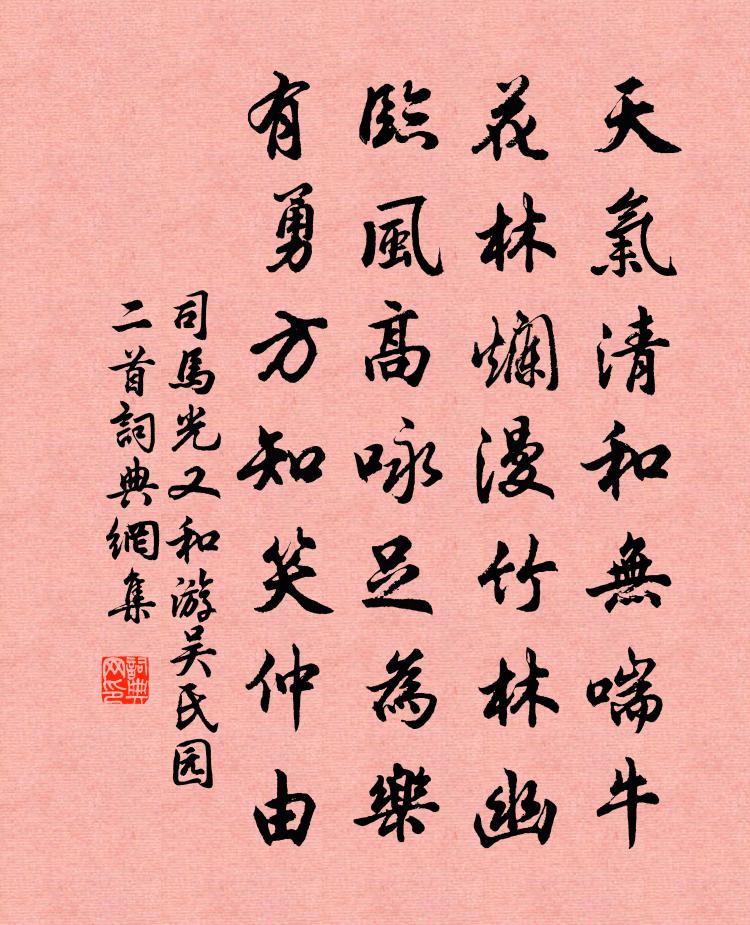 天氣清和無喘牛
花林爛漫竹林幽
臨風高咏足為樂
有勇方知笑仲由
司馬光又和游吴氏园
二首詞典網集
詞典网印